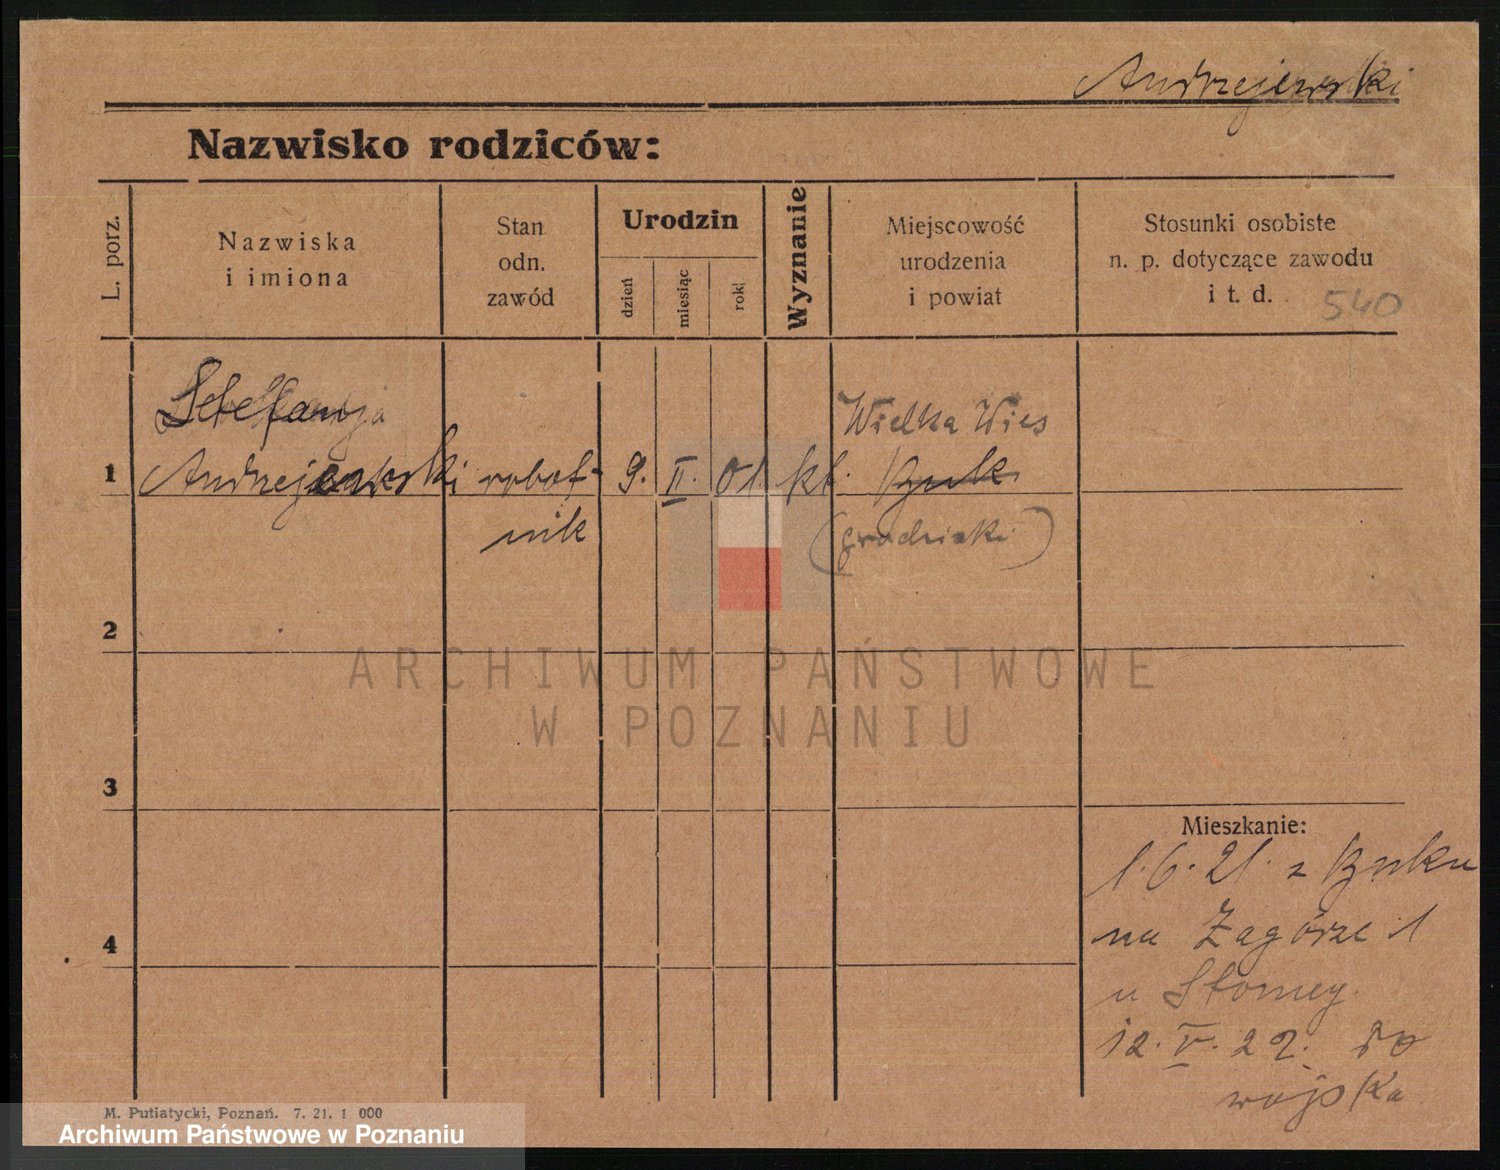 Andrzejewski
Nazwisko rodziców:
L. porz.
Nazwiska
i imiona
Stan
odn.
zawód
Urodzin
dzień
miesiąc
rok
Wyznanie
Miejscowość
urodzenia
i powiat
Stosunki osobiste
n. p. dotyczące zawodu
i t. d.
540
1
Andrzejewski
robot-
nik
9.
II.
01.
kt.
Wielka Wies
Buk
(grodziski)
2
3
4
Mieszkanie:
1.6.21. z Buku
na Zagórze 1
u Słomey.
12.V.22. do
wojska
ARCHIWUM PAŃSTWOWE
W POZNANIU
M. Putiatycki, Poznań. 7. 21. 1 000
Archiwum Państwowe w Poznaniu